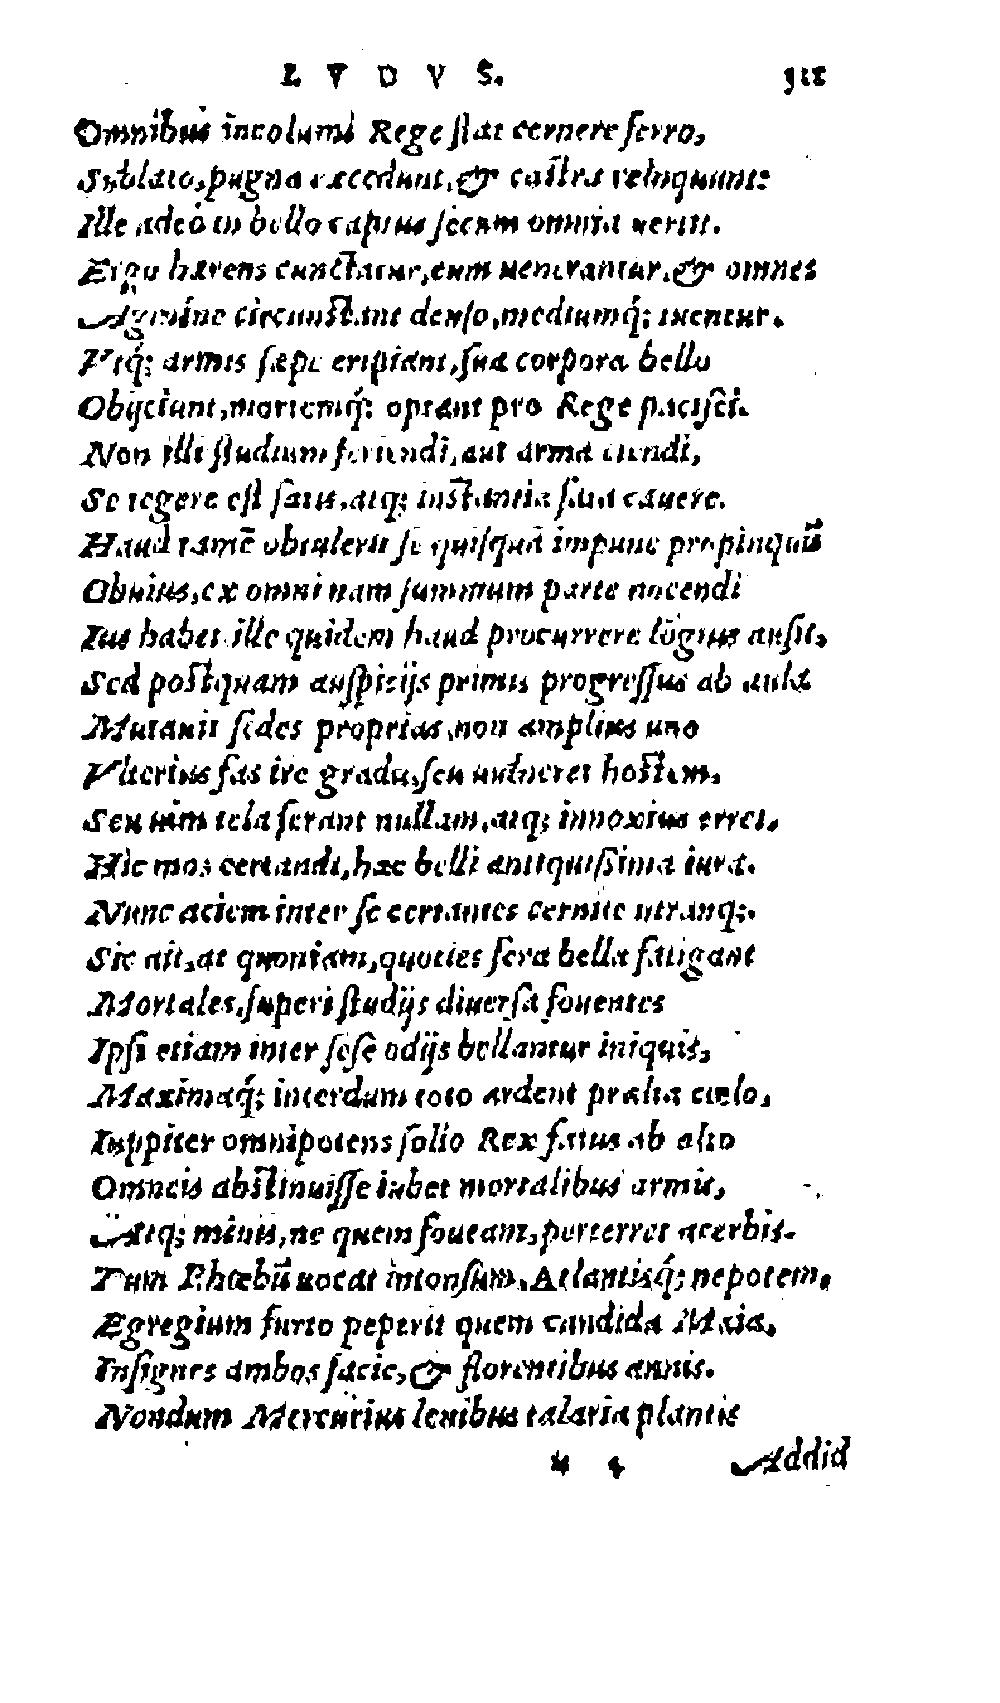 LVDVS. 311
Omnibus incolumi Rege stat cernere ferro,
Sublato, pugna excedunt, & castra relinquunt:
Ille adeò in bello captus secum omnia uertit.
Ergo hærens cunctatur, eum uenerantur, & omnes
Agmine circunstant denso, mediumq́; tuentur.
Vtq́; armis sæpe eripiant, sua corpora bello
Obijciunt, mortemq́; optant pro Rege pacisci.
Non illi studium feriendi, aut arma ciendi,
Se tegere est satis, atq; instantia fata cauere.
Haud tamē obtulerit se quisquā impune propinquū
Obuius, ex omni nam summum parte nocendi
Ius habet. ille quidem haud procurrere lōgius ausit,
Sed postquam auspicijs primus progressus ab aula
Mutauit sedes proprias, non amplius uno
Vlterius fas ire gradu, seu uulneret hostem,
Seu uim tela ferant nullam, atq; innoxius erret.
Hic mos certandi, hæc belli antiquissima iura.
Nunc aciem inter se certantes cernite utranq;.
Sic ait, at quoniam, quoties fera bella fatigant
Mortales, superi studijs diuersa fouentes
Ipsi etiam inter sese odijs bellantur iniquis,
Maximaq́; interdum toto ardent prælia cœlo,
Iuppiter omnipotens solio Rex fatus ab alto
Omneis abstinuisse iubet mortalibus armis,
Atq; minis, ne quem foueant, perterret acerbis.
Tum Phœbū uocat intonsum, Atlantisq́; nepotem,
Egregium furto peperit quem candida Maia,
Insignes ambos facie, & florentibus annis.
Nondum Mercurius leuibus talaria plantis
4 Addid